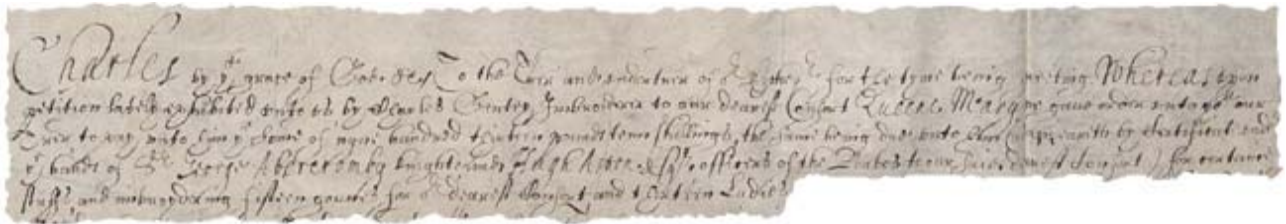 Charles by yᵉ grace of God &c. To the Trẽr and undertrẽr of oʳ Excheqʳ for the tyme being greeting Whereas upon
petition lately exhibited unto us by Charles Gentry Imbroiderer to our dearest Consort Queene Mary we gave order unto yoᵘ our
Trẽr to pay unto him yᵉ some of nyne hundred thirteen pounds tenn shillings, the same being due unto him by certificat und
yᵉ hands of Sʳ George Abercromby knight and Hugh Esqʳ, officers of the Robes to our dearest Consort) for certaine
stuffs and imbroydering fifteen gownes for oʳ dearest Consort and thirteen Ladies